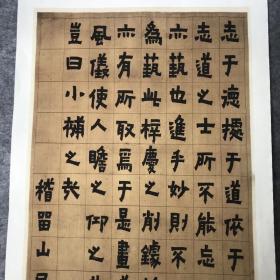 志于德據于道依于
志道之士所不能忘
亦藝也進乎妙則不
為藝此梓慶之削鐻
亦有所取焉于是畫
風儀使人瞻之仰之
豈曰小補之哉
稽留山民